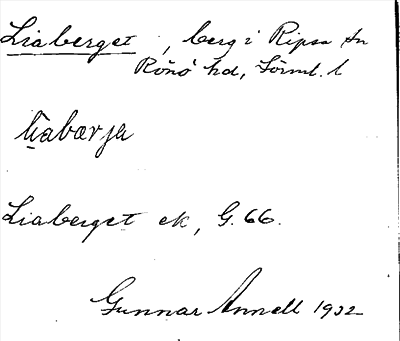 Liaberget, berg i Ripsa sn
Rönö hd, Sörml. l
Liaberget ek, G. 66.
Gunnar Annell 1932